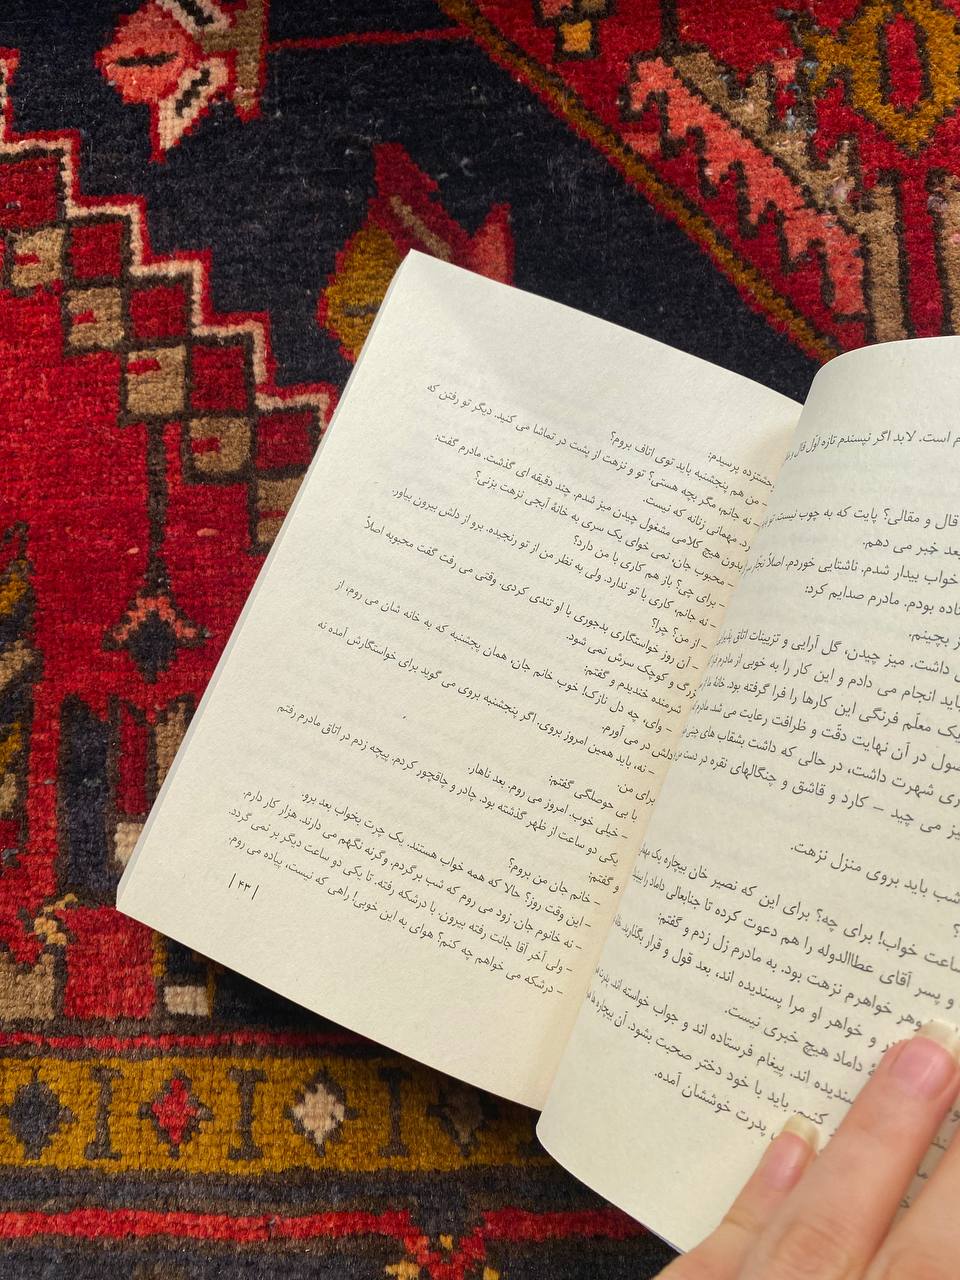 است. لابد اگر نپسندم تازه اول قال و
قال و مقالی؟ پایت که به چوب نیست. تو
بعد خبر می دهم.
خواب بیدار شدم. ناشتایی خوردم. اصلاً
بودم. مادرم صدایم کرد:
بچینم.
داشت. میز چیدن، گل آرایی و تزیینات اتاق
باید انجام می دادم و این کار را به خوبی از مادرم
یک معلّم فرنگی این کارها را فرا گرفته بود.
در آن نهایت دقّت و ظرافت رعایت می شد. مادرم
شهرت داشت، در حالی که داشت بشقاب های چینی
می چید – کارد و قاشق و چنگالهای نقره در دست
باید بروی منزل نزهت.
خواب! برای چه؟ برای این که نصیر خان بیچاره یک
و پسر آقای عطاالدوله را هم دعوت کرده تا جنابعالی داماد را
خواهرم نزهت بود. به مادرم زل زدم و گفتم:
و خواهر او مرا پسندیده اند، بعد قول و قرار بگذارید.
داماد هیچ خبری نیست.
اند. پیغام فرستاده اند و جواب خواسته اند.
کنیم. باید با خود دختر صحبت بشود. آن بیچاره ها
پدرت خوششان آمده.
پرسیدم:
– من هم پنجشنبه باید توی اتاف بروم؟
– نه جانم، مگر بچه هستی؟ تو و نزهت از پشت در تماشا می کنید. دیگر تو رفتن که
مهمانی زنانه که نیست.
بدون هیچ کلامی مشغول چیدن میز شدم. چند دقیقه ای گذشت. مادرم گفت:
– محبوب جان، نمی خوای یک سری به خانهٔ آبجی نزهت بزنی؟
– برای چی؟ باز هم کاری با من دارد؟
– نه جانم، کاری با تو ندارد. ولی به نظر من از تو رنجیده. برو از دلش بیرون بیاور.
– از من؟ چرا؟
– آن روز خواستگاری بدجوری با او تندی کردی. وقتی می رفت گفت محبوبه اصلاً
بزرگ و کوچک سرش نمی شود.
شرمنده خندیدم و گفتم:
– وای، چه دل نازک! خوب خانم جان، همان پجشنبه که به خانه شان می روم، از
دلش در می آورم.
– نه، باید همین امروز بروی. اگر پنجشنبه بروی می گوید برای خواستگارش آمده نه
برای من.
با بی حوصلگی گفتم:
– خیلی خوب. امروز می روم. بعد ناهار.
یکی دو ساعت از ظهر گذشته بود. چادر و چاقچور کردم. پیچه زدم در اتاق مادرم رفتم
و گفتم:
– خانم جان من بروم؟
– این وقت روز؟ حالا که همه خواب هستند. یک چرت بخواب بعد برو.
– نه خانوم جان. زود می روم که شب برگردم. وگرنه نگهم می دارند. هزار کار دارم.
– ولی آخر آقا جانت رفته بیرون. با درشکه رفته. تا یکی دو ساعت دیگر بر نمی گردد.
– درشکه می خواهم چه کنم؟ هوای به این خوبی! راهی که نیست، پیاده می روم.
| ۴۳ |